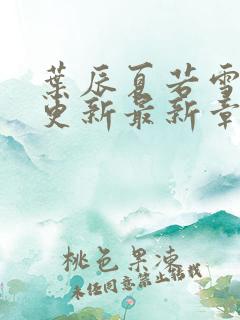 葉辰夏若雪
更新最新章
桃色果凍
未任同意禁止轉載